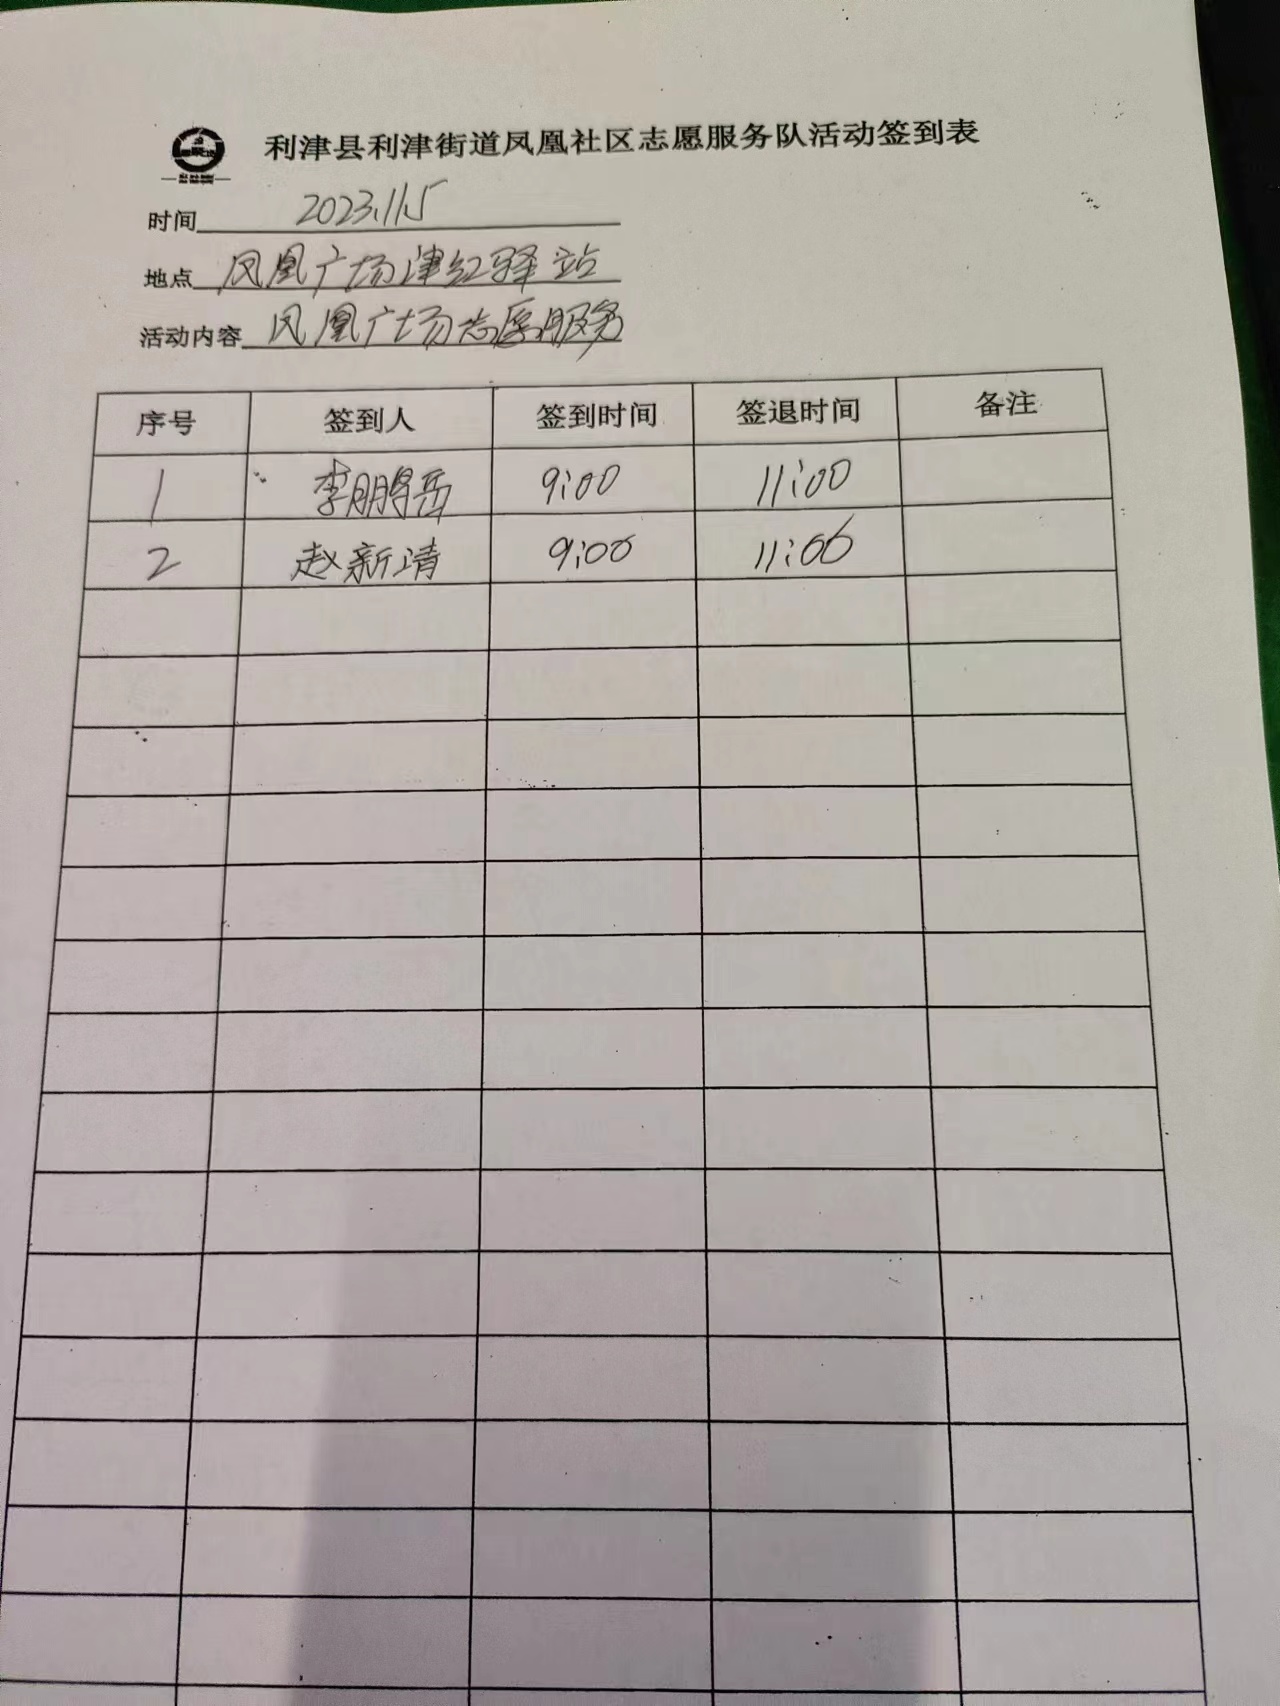 利津县利津街道凤凰社区志愿服务队活动签到表
时间 2023.11.5
地点 凤凰广场津红驿站
活动内容 凤凰广场志愿服务
序号 签到人 签到时间 签退时间 备注
1 李鹏岳 9:00 11:00
2 赵新清 9:00 11:00